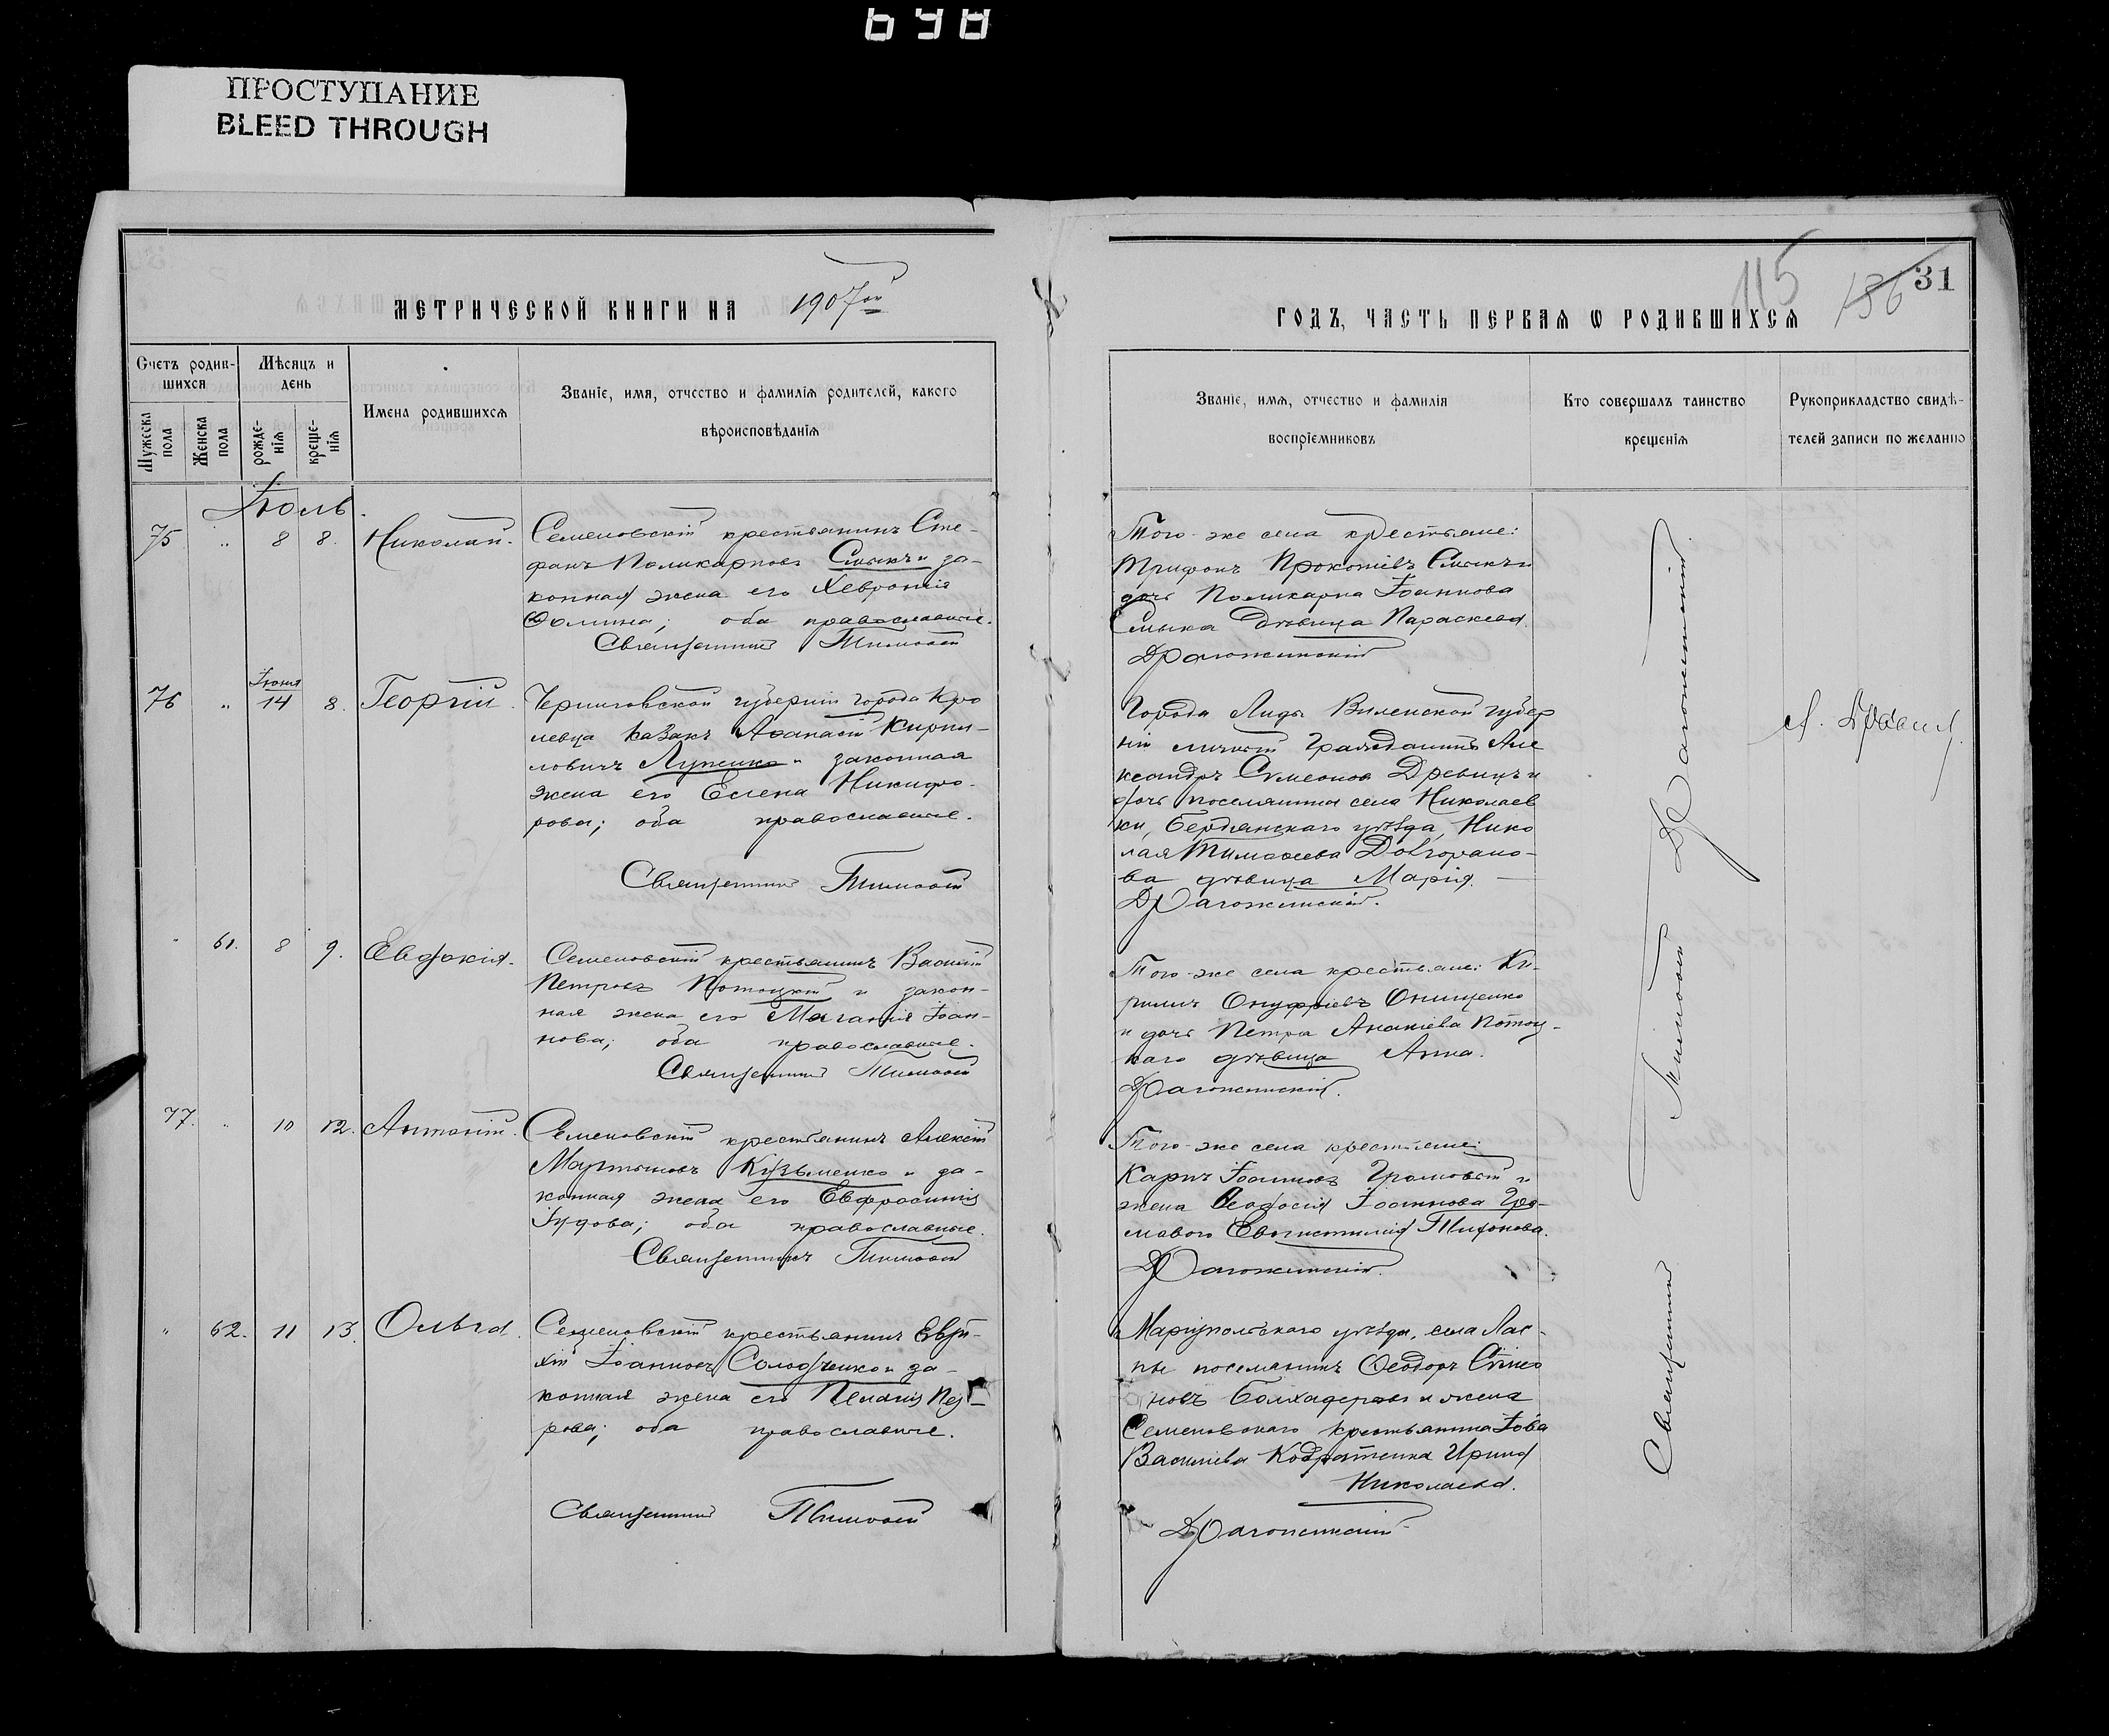 698
ПРОСТУПАНИЕ
BLEED THROUGH
МЕТРИЧЕСКОЙ КНИГИ НА 1907ой
Счетъ родив-
шихся
Мужеска пола
Женска пола
Мѣсяцъ и
день
рожде-
нія
креще-
нія
Имена родившихся
Званіе, имя, отчество и фамилія родителей, какого
вѣроисповѣданія
Іюль.
75 " 8 8. Николай.
Семеновскій крестьянинъ Сте-
фанъ Поликарповъ Смыкъ и за-
конная жена его Хевронія
Фомина; оба православные.
Священникъ Тимофей
76 " Іюня 14 8. Георгій.
Черниговской губерніи города Кро
левца казакъ Афанасій Кирил-
ловичъ Луценко и законная
жена его Елена Никифо-
рова; оба православные.
Священникъ Тимофей
" 61. 8 9. Евдокія.
Семеновскій крестьянинъ Василій
Петровъ Потоцкій и закон-
ная жена его Меланія Іоан-
нова; оба православные.
Священникъ Тимофей
77. " 10 12. Антоній.
Семеновскій крестьянинъ Алексій
Мартыновъ Кузьменко и за-
конная жена его Евфросинія
Іудова; оба православные.
Священникъ Тимофей
" 62. 11 13. Ольга.
Семеновскій крестьянинъ Евти-
хій Іоанновъ Солодченко и за-
конная жена его Пелагія Пет-
рова; оба православные.
Священникъ Тимофей
115 186 31
ГОДЪ, ЧАСТЬ ПЕРВАЯ Ѡ РОДИВШИХСЯ
Званіе, имя, отчество и фамилія
воспріемниковъ
Кто совершалъ таинство
крещенія
Рукоприкладство свидѣ-
телей записи по желанію
Того-же села крестьяне:
Трифонъ Прокопіевъ Смыкъ и
дочь Поликарпа Іоаннова
Смыка дѣвица Параскева.
Драгожинскій
Города Лиды Виленской губер
ніи личный гражданинъ Але
ксандръ Симеоновъ Древичъ и
дочь поселянина села Николаев
ки, Бердянскаго уѣзда, Нико
лая Тимофеева
ва дѣвица Марія.
Драгожинскій.
Того-же села крестьяне: Ки-
риллъ Онуфріевъ Онищенко
и дочь Петра Ананіева Потоц-
каго дѣвица Анна.
Драгожинскій.
Того-же села крестьяне:
Карпъ Іоанновъ Громовый и
жена Феодосія Іоаннова Гро-
мового
Драгожинскій.
Маріупольскаго уѣзда, села Лас-
пы поселянинъ Феодоръ
новъ и жена
Семеновскаго крестьянина Іова
Васильева Кодратенка Ирина
Николаева.
Драгожинскій
Священникъ Тимофей Драгожинскій.
А.